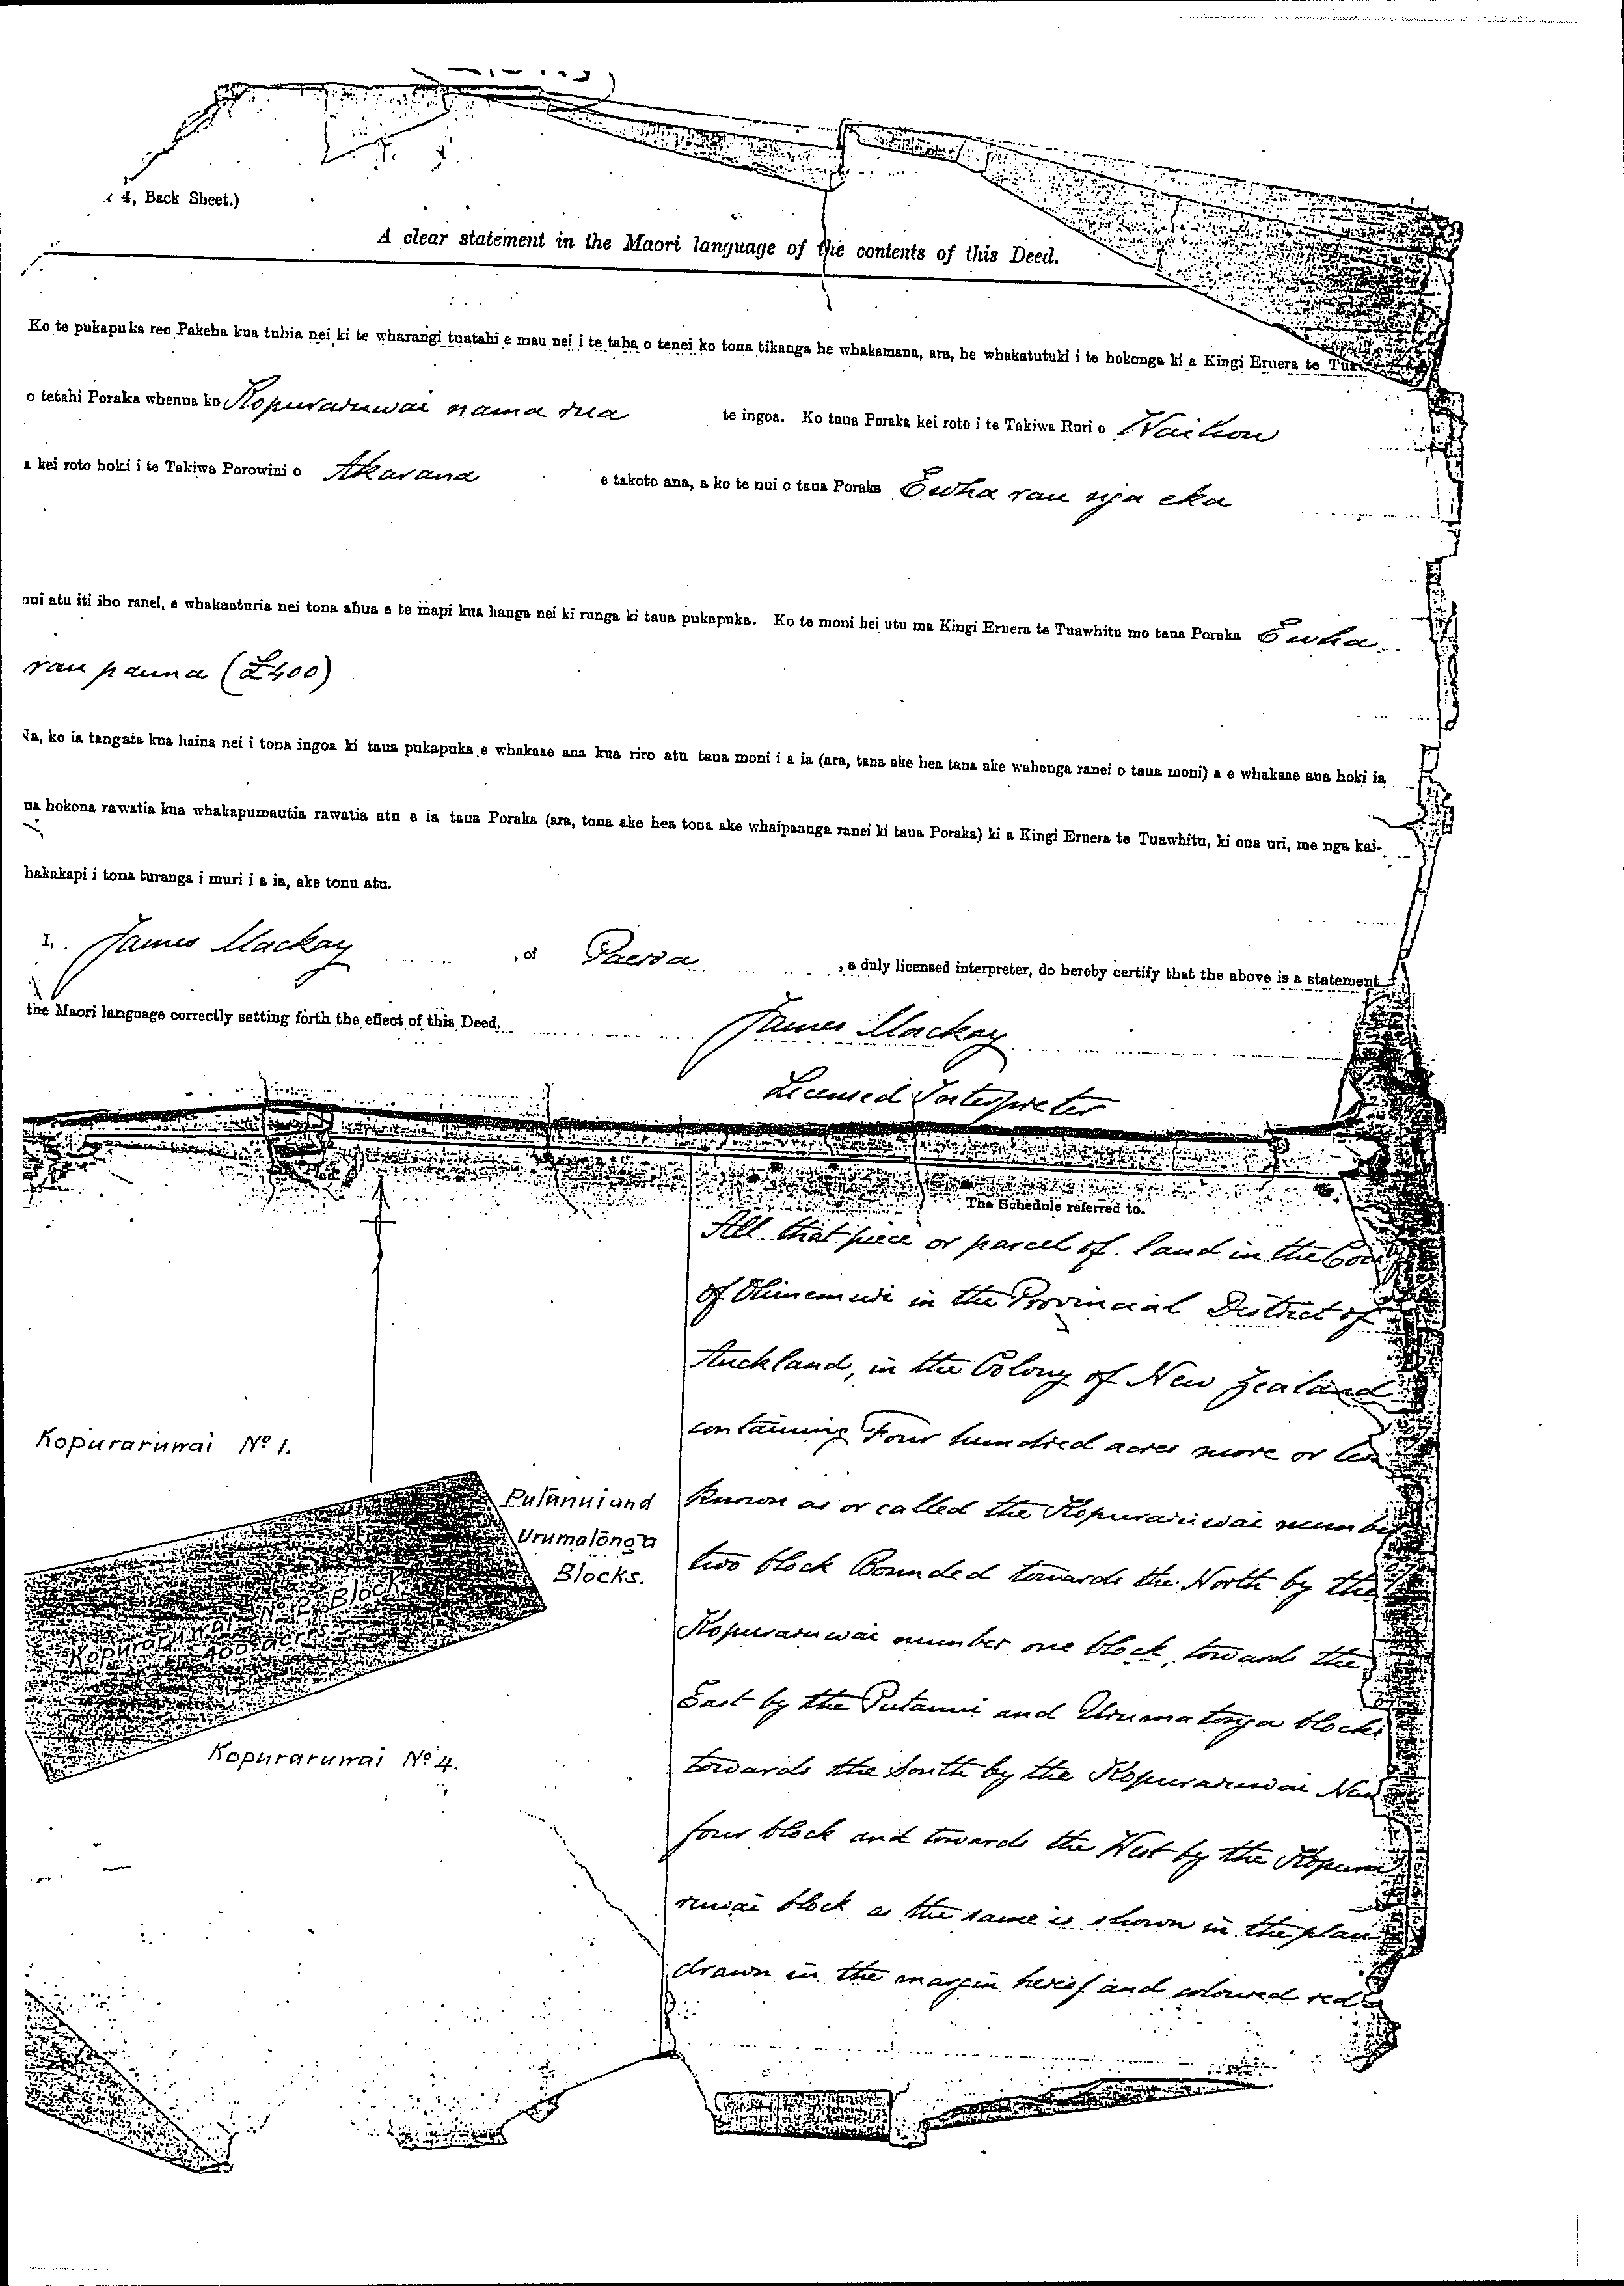 4, Back Sheet.)
A clear statement in the Maori language of the contents of this Deed.
Ko te pukapuka reo Pakeha kua tuhia nei ki te wharangi tuatahi e mau nei i te taha o tenei ko tona tikanga he whakamana, ara, he whakatutuki i te hokonga ki a Kingi Eruera te
o tetahi Poraka whenua ko Kopuraruwai nama rua te ingoa. Ko taua Poraka kei roto i te Takiwa Ruri o Waihou
a kei roto hoki i te Takiwa Porowini o Akarana e takoto ana, a ko te nui o taua Poraka Ewha rau nga eka
nui atu iti iho ranei, e whakaaturia nei tona ahua e te mapi kua hanga nei ki runga ki taua pukapuka. Ko te moni hei utu ma Kingi Eruera te Tuawhitu mo taua Poraka Ewha
rau pauna (£400)
Na, ko ia tangata kua haina nei i tona ingoa ki taua pukapuka e whakaae ana kua riro atu taua moni i a ia (ara, tana ake hea tana ake wahanga ranei o taua moni) a e whakaae ana hoki ia
ua hokona rawatia kua whakapumautia rawatia atu e ia taua Poraka (ara, tona ake hea tona ake whaipaanga ranei ki taua Poraka) ki a Kingi Eruera te Tuawhitu, ki ona uri, me nga kai-
hakakapi i tona turanga i muri i a ia, ake tonu atu.
I, James Mackay, of Paeroa, a duly licensed interpreter, do hereby certify that the above is a statement
the Maori language correctly setting forth the effect of this Deed.
James Mackay
Licensed Interpreter
Kopuraruwai No 1.
Putanui and
Urumatonga
Blocks.
Kopuraruwai No 2 Block
400 acres
Kopuraruwai No 4.
The Schedule referred to.
All that piece or parcel of land in the
of Ohinemuri in the Provincial District of
Auckland, in the Colony of New Zealand
containing Four hundred acres more or less
known as or called the Kopuraruwai number
two block Bounded towards the North by the
Kopuraruwai number one block, towards the
East by the Putanui and Urumatonga blocks
towards the South by the Kopuraruwai
four block and towards the West by the Kopura
ruwai block as the same is shown in the plan
drawn in the margin hereof and coloured red